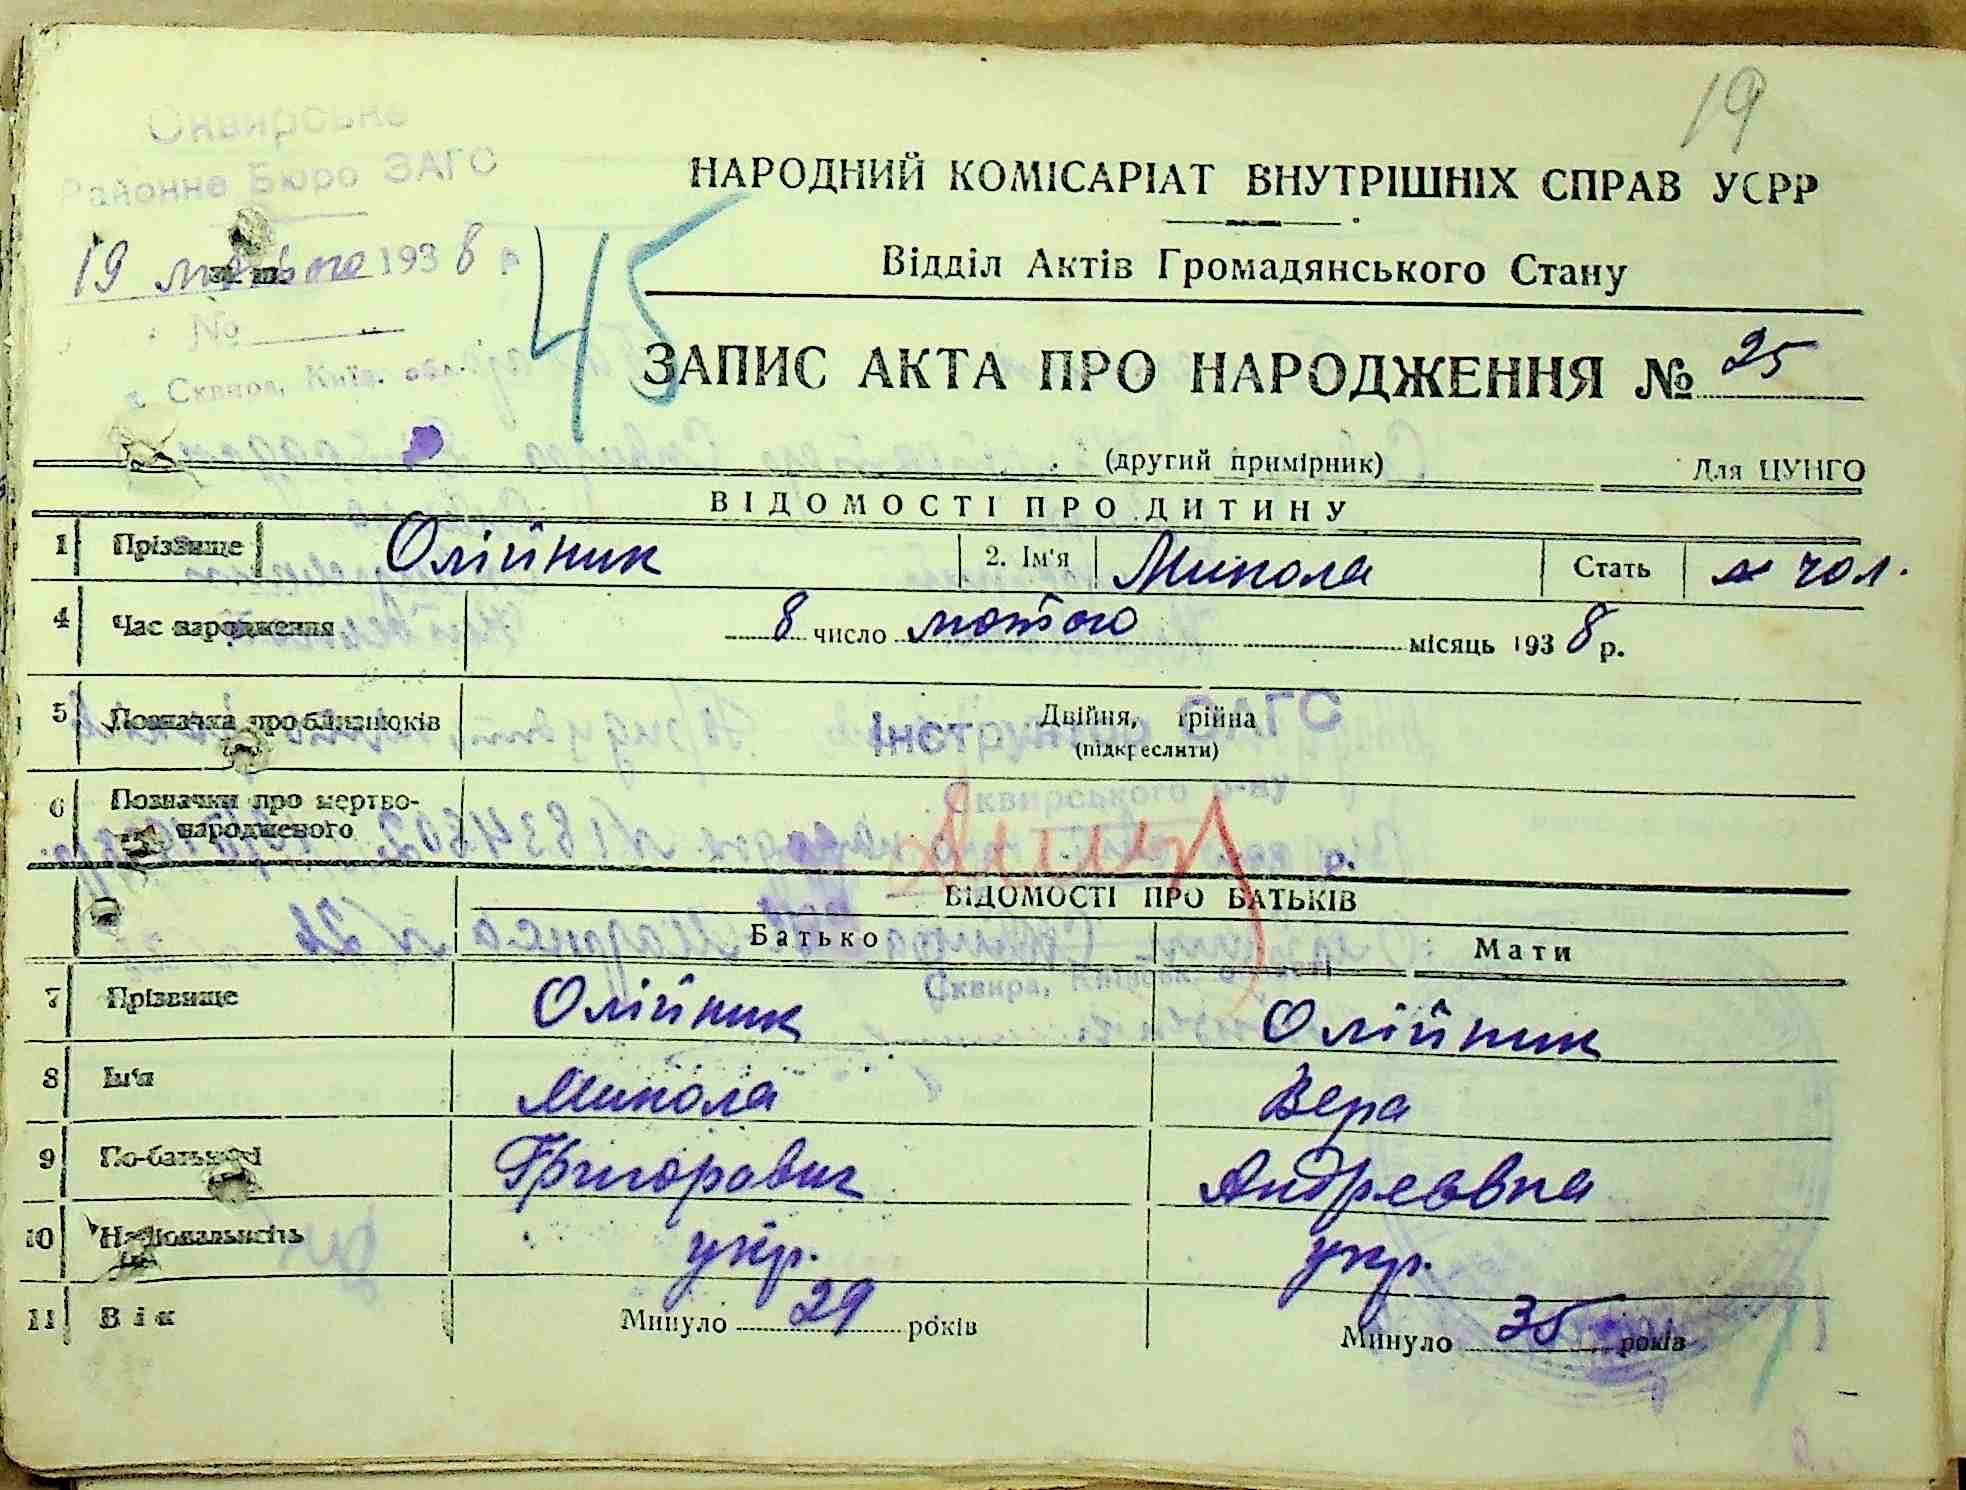 19
Сквирське
Районне Бюро ЗАГС
19 лютого 1938 р
№
м. Сквира, Київ. обл.
45
НАРОДНИЙ КОМІСАРІАТ ВНУТРІШНІХ СПРАВ УСРР
Відділ Актів Громадянського Стану
ЗАПИС АКТА ПРО НАРОДЖЕННЯ № 25
(другий примірник) Для ЦУНГО
ВІДОМОСТІ ПРО ДИТИНУ
1 Прізвище Олійник 2. Ім'я Микола Стать чол.
4 Час народження 8 число лютого місяць 1938 р.
5 Позначка про близнюків Двійня, трійна
(підкреслити)
Інструктор ЗАГС
6 Позначки про мертво-
народженого
Сквирського р-ну
ВІДОМОСТІ ПРО БАТЬКІВ
Батько Мати
Сквира, Київськ. області
7 Прізвище Олійник Олійник
8 Ім'я Микола Вера
9 По-батькові Григорович Андреевна
10 Національність укр. укр.
11 Вік Минуло 29 років Минуло 35 років